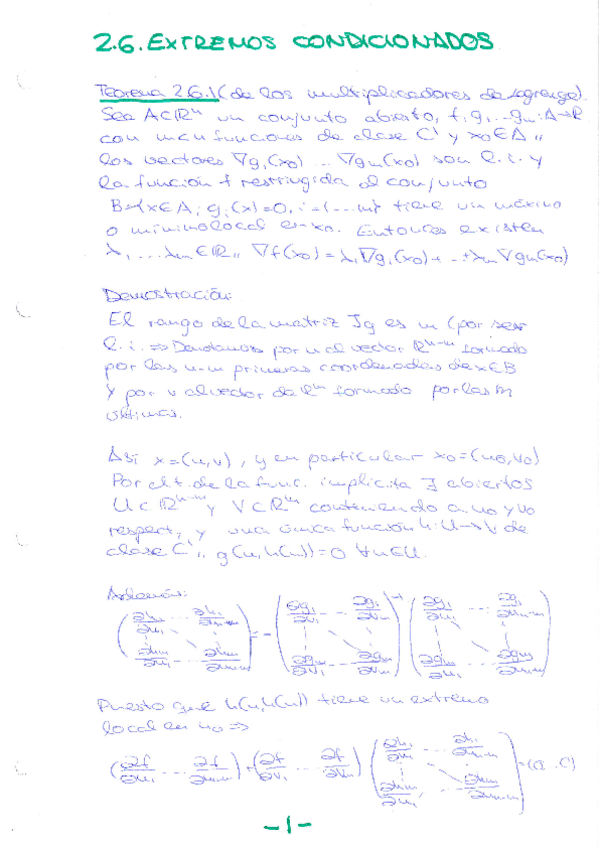 2.6. EXTREMOS CONDICIONADOS
Teorema 2.6.1 (de los multiplicadores de Lagrange).
Sea A⊂ℝⁿ un conjunto abierto, f, g₁...gₘ: A→ℝ
con m<n funciones de clase C¹ y x₀∈A //
los vectores ∇g₁(x₀) ... ∇gₘ(x₀) son l.i. y
la función f restringida al conjunto
B={x∈A; gᵢ(x)=0, i=1...m} tiene un máximo
o mínimo local en x₀. Entonces existen
λ₁...λₘ∈ℝ // ∇f(x₀)=λ₁∇g₁(x₀)+...+λₘ∇gₘ(x₀)
Demostración:
El rango de la matriz Jg es m (por ser
l.i. ⇒ Denotamos por u al vector ℝⁿ⁻ᵐ formado
por las n-m primeras coordenadas de x∈B
y por v al vector de ℝᵐ formado por las m
últimas.
Así x=(u,v), y en particular x₀=(u₀,v₀)
Por el t. de la func. implícita ∃ abiertos
U⊂ℝⁿ⁻ᵐ y V⊂ℝᵐ conteniendo a u₀ y v₀
respect, y una única función h:U→V de
clase C¹ // g(u,h(u))=0 ∀u∈U.
Además:
(∂h₁/∂u₁ ... ∂h₁/∂uₙ₋ₘ ; ∂hₘ/∂u₁ ... ∂hₘ/∂uₙ₋ₘ) = -(∂g₁/∂v₁ ... ∂g₁/∂vₘ ; ∂gₘ/∂v₁ ... ∂gₘ/∂vₘ)⁻¹ (∂g₁/∂u₁ ... ∂g₁/∂uₙ₋ₘ ; ∂gₘ/∂u₁ ... ∂gₘ/∂uₙ₋ₘ)
Puesto que h(u,h(u)) tiene un extremo
local en u₀ ⇒
(∂f/∂u₁ ... ∂f/∂uₙ₋ₘ) + (∂f/∂v₁ ... ∂f/∂vₘ) (∂h₁/∂u₁ ... ∂h₁/∂uₙ₋ₘ ; ∂hₘ/∂u₁ ... ∂hₘ/∂uₙ₋ₘ) = (0...0)
-1-